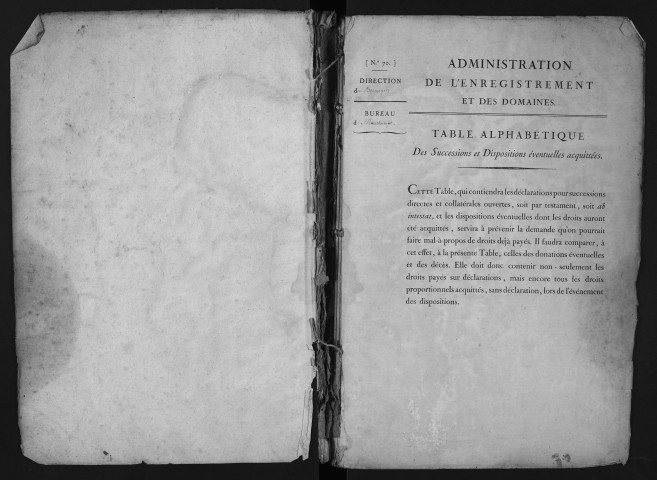 [ N.º 70. ]
DIRECTION
d
BUREAU
d
ADMINISTRATION
DE L'ENREGISTREMENT
ET DES DOMAINES.
TABLE ALPHABÉTIQUE
Des Successions et Dispositions éventuelles acquittées.
CETTE Table, qui contiendra les déclarations pour successions
directes et collatérales ouvertes, soit par testament, soit ab
intestat, et les dispositions éventuelles dont les droits auront
été acquittés, servira à prévenir la demande qu'on pourrait
faire mal-à-propos de droits déjà payés. Il faudra comparer, à
cet effet, à la présente Table, celles des donations éventuelles
et des décès. Elle doit donc contenir non-seulement les
droits payés sur déclarations, mais encore tous les droits
proportionnels acquittés, sans déclaration, lors de l'événement
des dispositions.